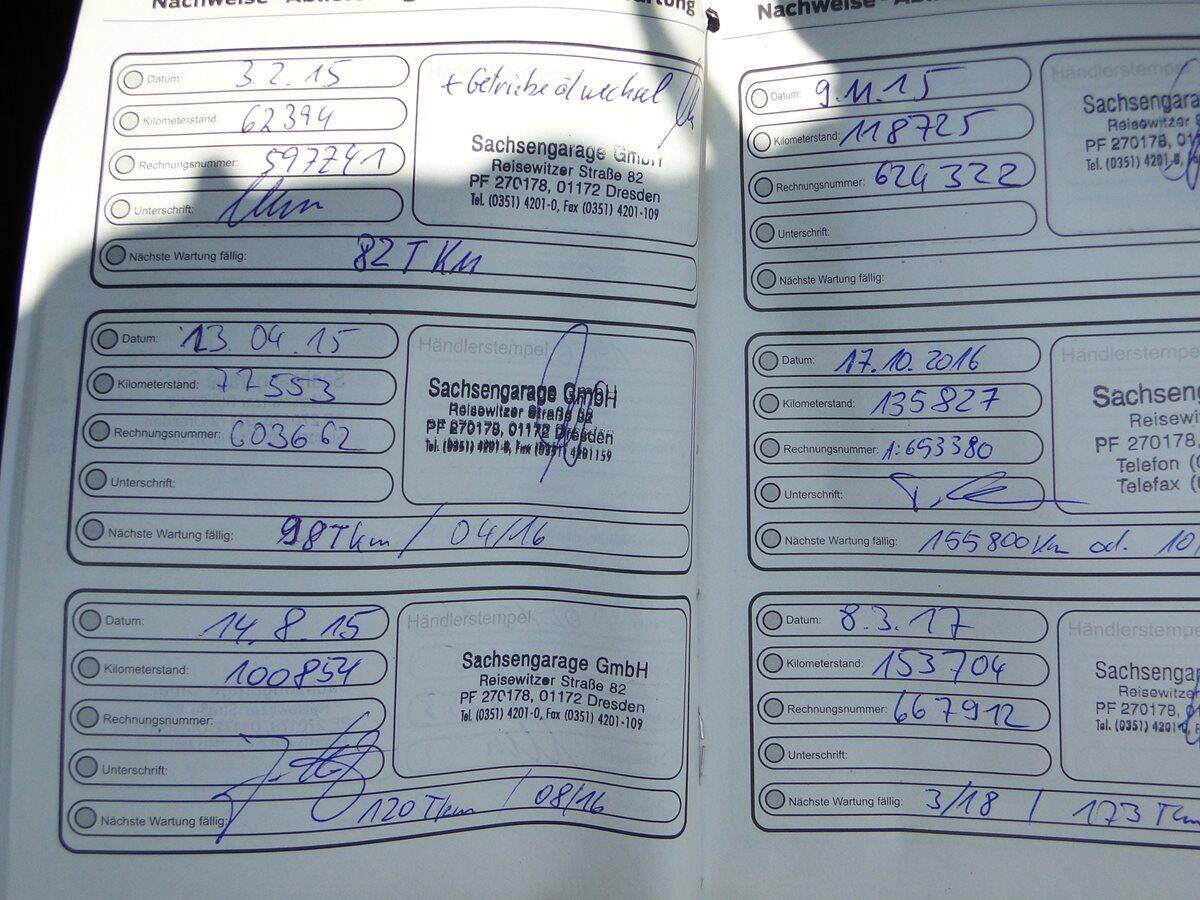 Datum: 3.2.15
Kilometerstand: 62394
Rechnungsnummer: 597741
Unterschrift:
Nächste Wartung fällig: 82 T KM
+ Getriebeölwechsel
Sachsengarage GmbH
Reisewitzer Straße 82
PF 270178, 01172 Dresden
Tel. (0351) 4201-0, Fax (0351) 4201-109
Datum: 13.04.15
Kilometerstand: 77553
Rechnungsnummer: 603662
Unterschrift:
Nächste Wartung fällig: 98Tkm / 04/16
Händlerstempel
Sachsengarage GmbH
Reisewitzer Straße
PF 270178, 01172 Dresden
Datum: 14.8.15
Kilometerstand: 100854
Rechnungsnummer:
Unterschrift:
Nächste Wartung fällig: 120 Tkm / 08/16
Händlerstempel
Sachsengarage GmbH
Reisewitzer Straße 82
PF 270178, 01172 Dresden
Tel. (0351) 4201-0, Fax (0351) 4201-109
Datum: 9.11.15
Kilometerstand: 118725
Rechnungsnummer: 624322
Unterschrift:
Nächste Wartung fällig:
Händlerstempel
Sachsengara
Reisewitzer
PF 270178, 01
Tel. (0351) 4201-
Datum: 17.10.2016
Kilometerstand: 135827
Rechnungsnummer: 1:653380
Unterschrift:
Nächste Wartung fällig: 155800Km od. 10
Händlerstempe
Sachseng
Reisewi
PF 270178,
Telefon (
Telefax (
Datum: 8.3.17
Kilometerstand: 153704
Rechnungsnummer: 667912
Unterschrift:
Nächste Wartung fällig: 3/18 / 173 Tkm
Händlerstempe
Sachsengar
Reisewitze
PF 270178,
Tel. (0351) 4201